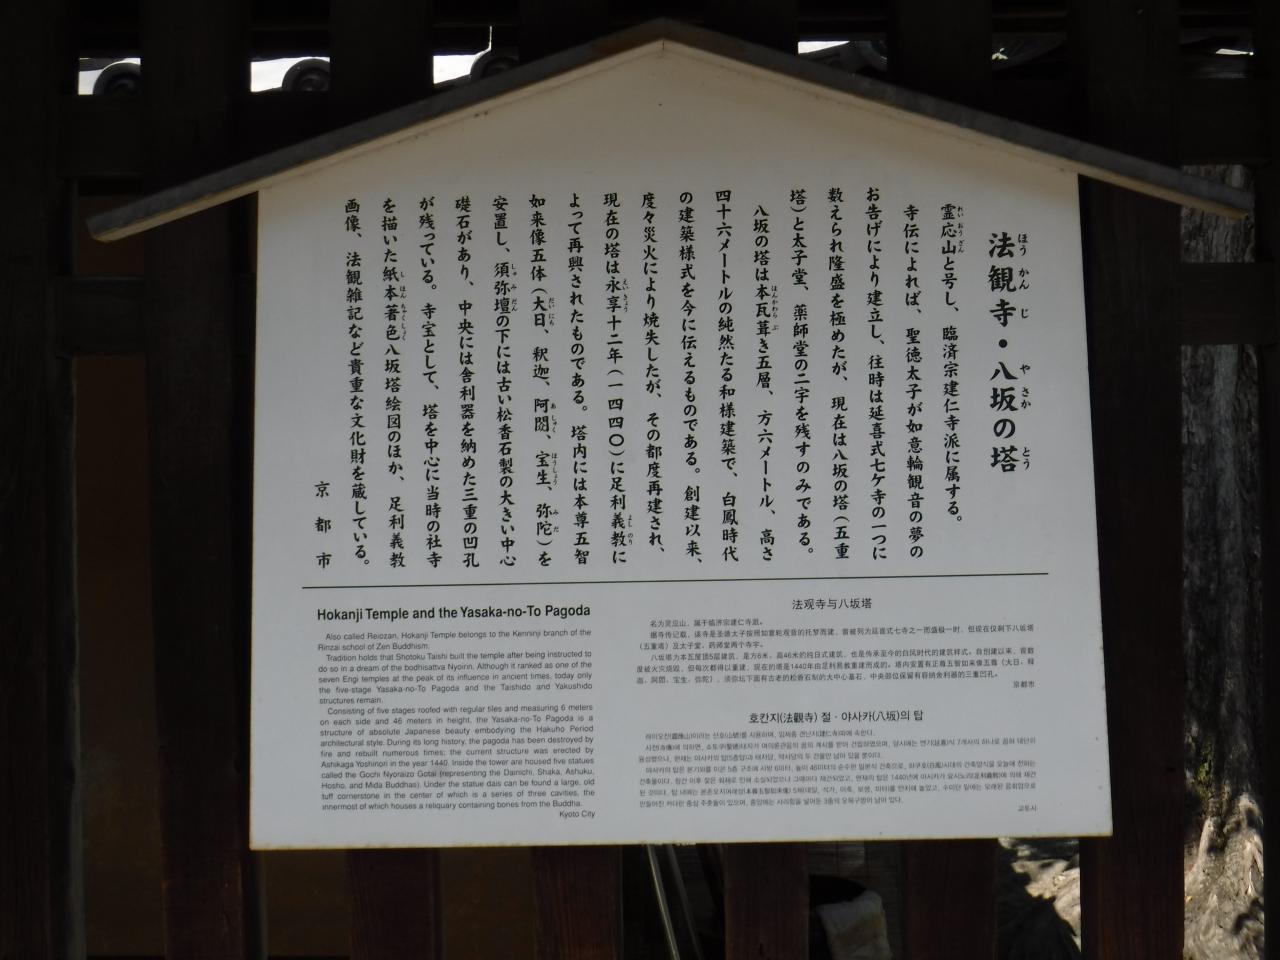 法観寺・八坂の塔
霊応山と号し、臨済宗建仁寺派に属する。
寺伝によれば、聖徳太子が如意輪観音の夢の
お告げにより建立し、往時は延喜式七ケ寺の一つに
数えられ隆盛を極めたが、現在は八坂の塔(五重
塔)と太子堂、薬師堂の二宇を残すのみである。
八坂の塔は本瓦葺き五層、方六メートル、高さ
四十六メートルの純然たる和様建築で、白鳳時代
の建築様式を今に伝えるものである。創建以来、
度々災火により焼失したが、その都度再建され、
現在の塔は永享十二年(一四四〇)に足利義教に
よって再興されたものである。塔内には本尊五智
如来像五体(大日、釈迦、阿閦、宝生、弥陀)を
安置し、須弥壇の下には古い松香石製の大きい中心
礎石があり、中央には舎利器を納めた三重の凹孔
が残っている。寺宝として、塔を中心に当時の社寺
を描いた紙本著色八坂塔絵図のほか、足利義教
画像、法観雑記など貴重な文化財を蔵している。
京都市
Hokanji Temple and the Yasaka-no-To Pagoda
Also called Reiozan, Hokanji Temple belongs to the Kenninji branch of the
Rinzai school of Zen Buddhism.
Tradition holds that Shotoku Taishi built the temple after being instructed to
do so in a dream of the bodhisattva Nyoirin. Although it ranked as one of the
seven Engi temples at the peak of its influence in ancient times, today only
the five-stage Yasaka-no-To Pagoda and the Taishido and Yakushido
structures remain.
Consisting of five stages roofed with regular tiles and measuring 6 meters
on each side and 46 meters in height, the Yasaka-no-To Pagoda is a
structure of absolute Japanese beauty embodying the Hakuho Period
architectural style. During its long history, the pagoda has been destroyed by
fire and rebuilt numerous times; the current structure was erected by
Ashikaga Yoshinori in the year 1440. Inside the tower are housed five statues
called the Gochi Nyoraizo Gotai (representing the Dainichi, Shaka, Ashuku,
Hosho, and Mida Buddhas). Under the statue dais can be found a large, old
tuff cornerstone in the center of which is a series of three cavities, the
innermost of which houses a reliquary containing bones from the Buddha.
Kyoto City
法观寺与八坂塔
名为灵应山，属于临济宗建仁寺派。
据寺传记载，该寺是圣德太子按照如意轮观音的托梦而建，曾被列为延喜式七寺之一而盛极一时，但现在仅剩下八坂塔
(五重塔)及太子堂、药师堂两个寺宇。
八坂塔为本瓦屋顶5层建筑，是方6米，高46米的纯日式建筑，也是传承至今的白凤时代的建筑样式。自创建以来，曾数
度被火灾烧毁，但每次都得以重建，现在的塔是1440年由足利义教重建而成的。塔内安置有正尊五智如来像五尊(大日，释
迦，阿閦，宝生，弥陀)，须弥坛下面有古老的松香石制的大中心基石，中央部位保留有容纳舍利器的三重凹孔。
京都市
호칸지(法觀寺) 절・야사카(八坂)의 탑
교토시